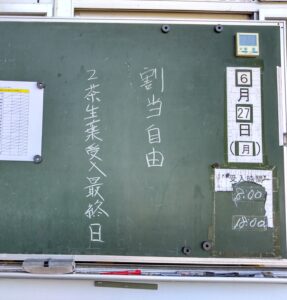 6月27日(月)
受入時間
8:00
18:00
割当自由
2茶生葉受入最終日